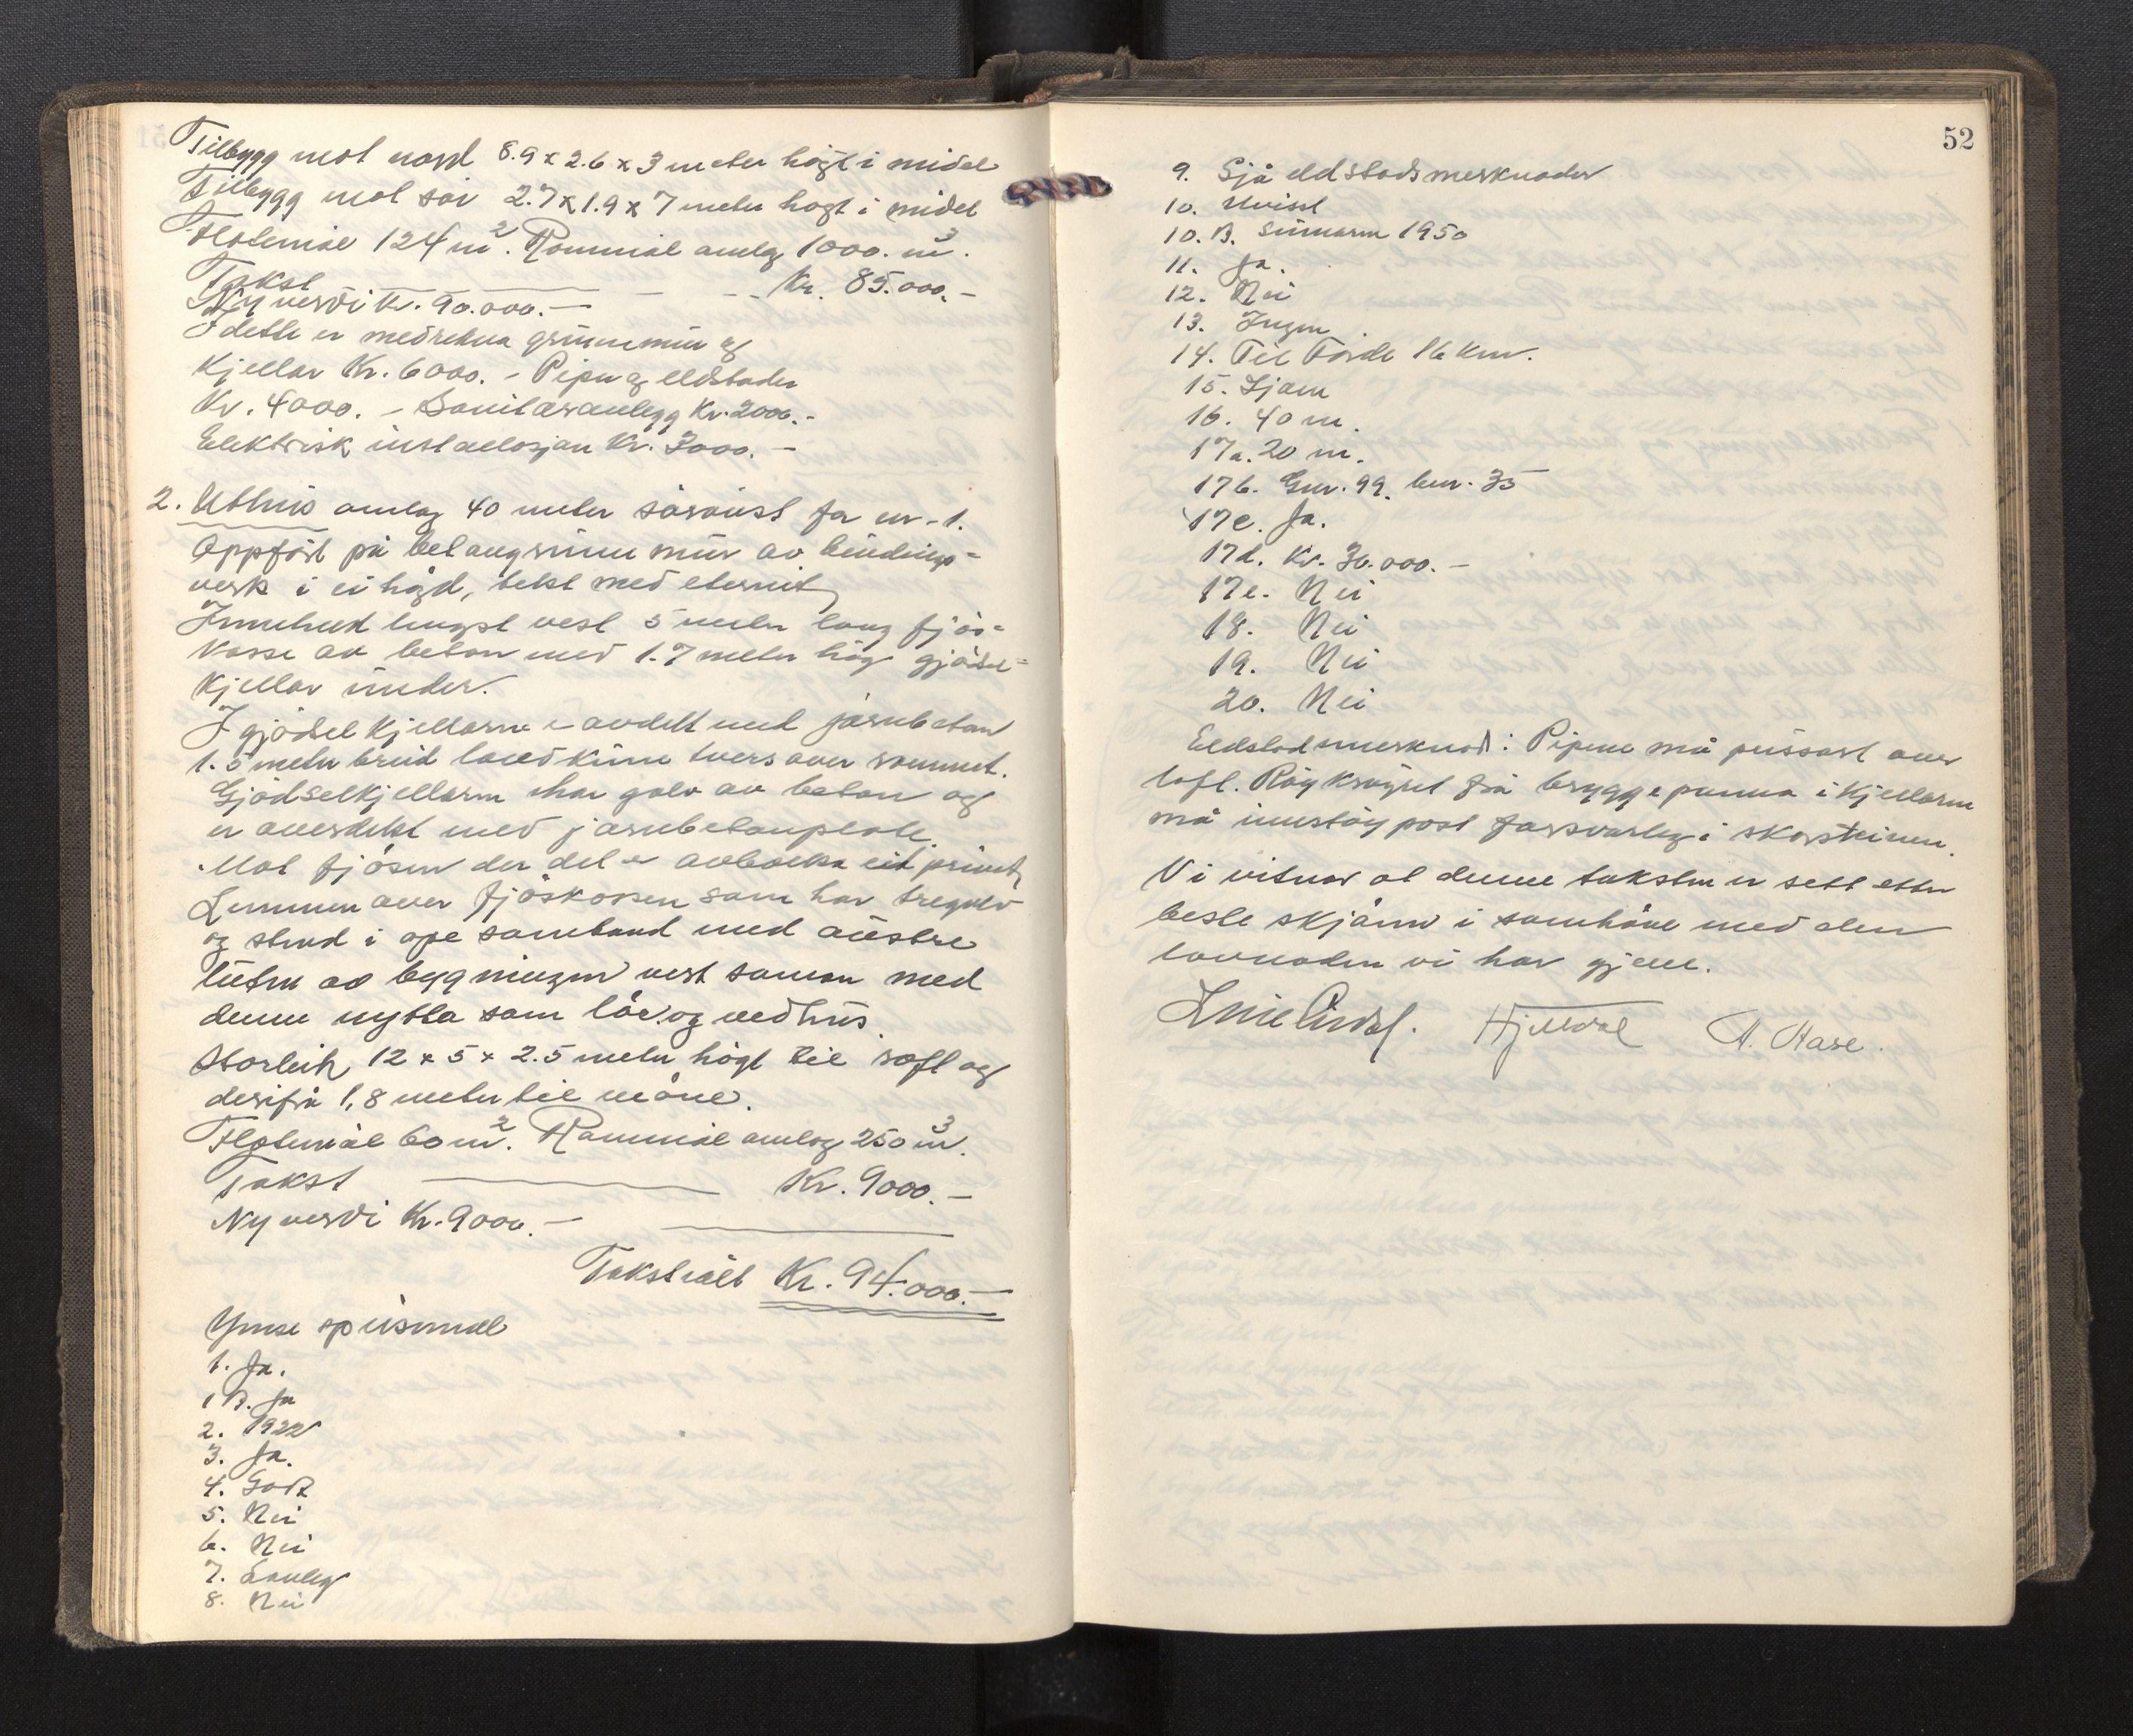 Tilbygg mot nord 8.9 x 2.6 x 3 meter högt i midel
Tilbygg mot sör 2.7 x 1.9 x 7 meter högt i midel
Flatemål 124 m². Rommål omlag 1000. m³.
Takst — — — Kr. 85.000.-
Ny verdi kr. 90.000.—
I dette er medrekna grunnmur og
kjellar Kr. 6000. - Pipe og eldstader
Kr. 4000. - Sanitæranlegg Kr. 2000.-
Elektrisk installasjon Kr. 3000. -
2. Uthus omlag 40 meter söraust for nr. 1.
Oppfört på betongrunnmur av bindings=
verk i ei högd, tekt med eternit
Inneheld lengst vest 5 meter lang fjös=
kasse av betong med 1.7 meter hög gjödsel=
kjellar under.
I gjödselkjellaren er avdelt med jarnbetong
1.5 meter breid landkum tvers over rommet.
Gjödselkjellaren har golv av betong og
er overdekt med jarnbetongplate.
Mot fjösen der det er
Lemmen over fjöskassen som har tregolv
og stend i ope samband med austre
luten av bygningen vert saman med
denne nytta som låve og vedhus.
Storleik 12 x 5 x 2.5 meter högt til raft og
derifrå 1,8 meter til möne.
Flatemål 60 m². Rommål omlag 250 m³.
Takst — Kr. 9000.—
Ny verdi Kr. 9000.—
Takst ialt Kr. 94.000.—
Ymse spursmål
1. Ja.
1 B. Ja
2. 1922
3. Ja.
4. Godt
5. Nei
6. Nei
7. Lauleg
8. Nei
52
9. Sjå eldstadsmerknader
10. Uvisst
10. B. Sumaren 1950
11. Ja.
12. Nei
13. Ingen
14. Til Förde 16 km.
15. Ljom
16. 40 m.
17a. 20 m.
17b. Gnr. 99. bnr. 35
17c. Ja.
17d. Kr. 30.000.—
17e. Nei
18. Nei
19. Nei
20. Nei
Eldstadmerknad: Pipene må pussast over
loft. Röykröyret frå bryggepanna i kjellaren
må innstöypast forsvarleg i skorsteinen.
Vi vitnar at denne taksten er sett etter
beste skjönn i samhöve med den
lovnaden vi har gjeve.
Hjelldal A. Hase.